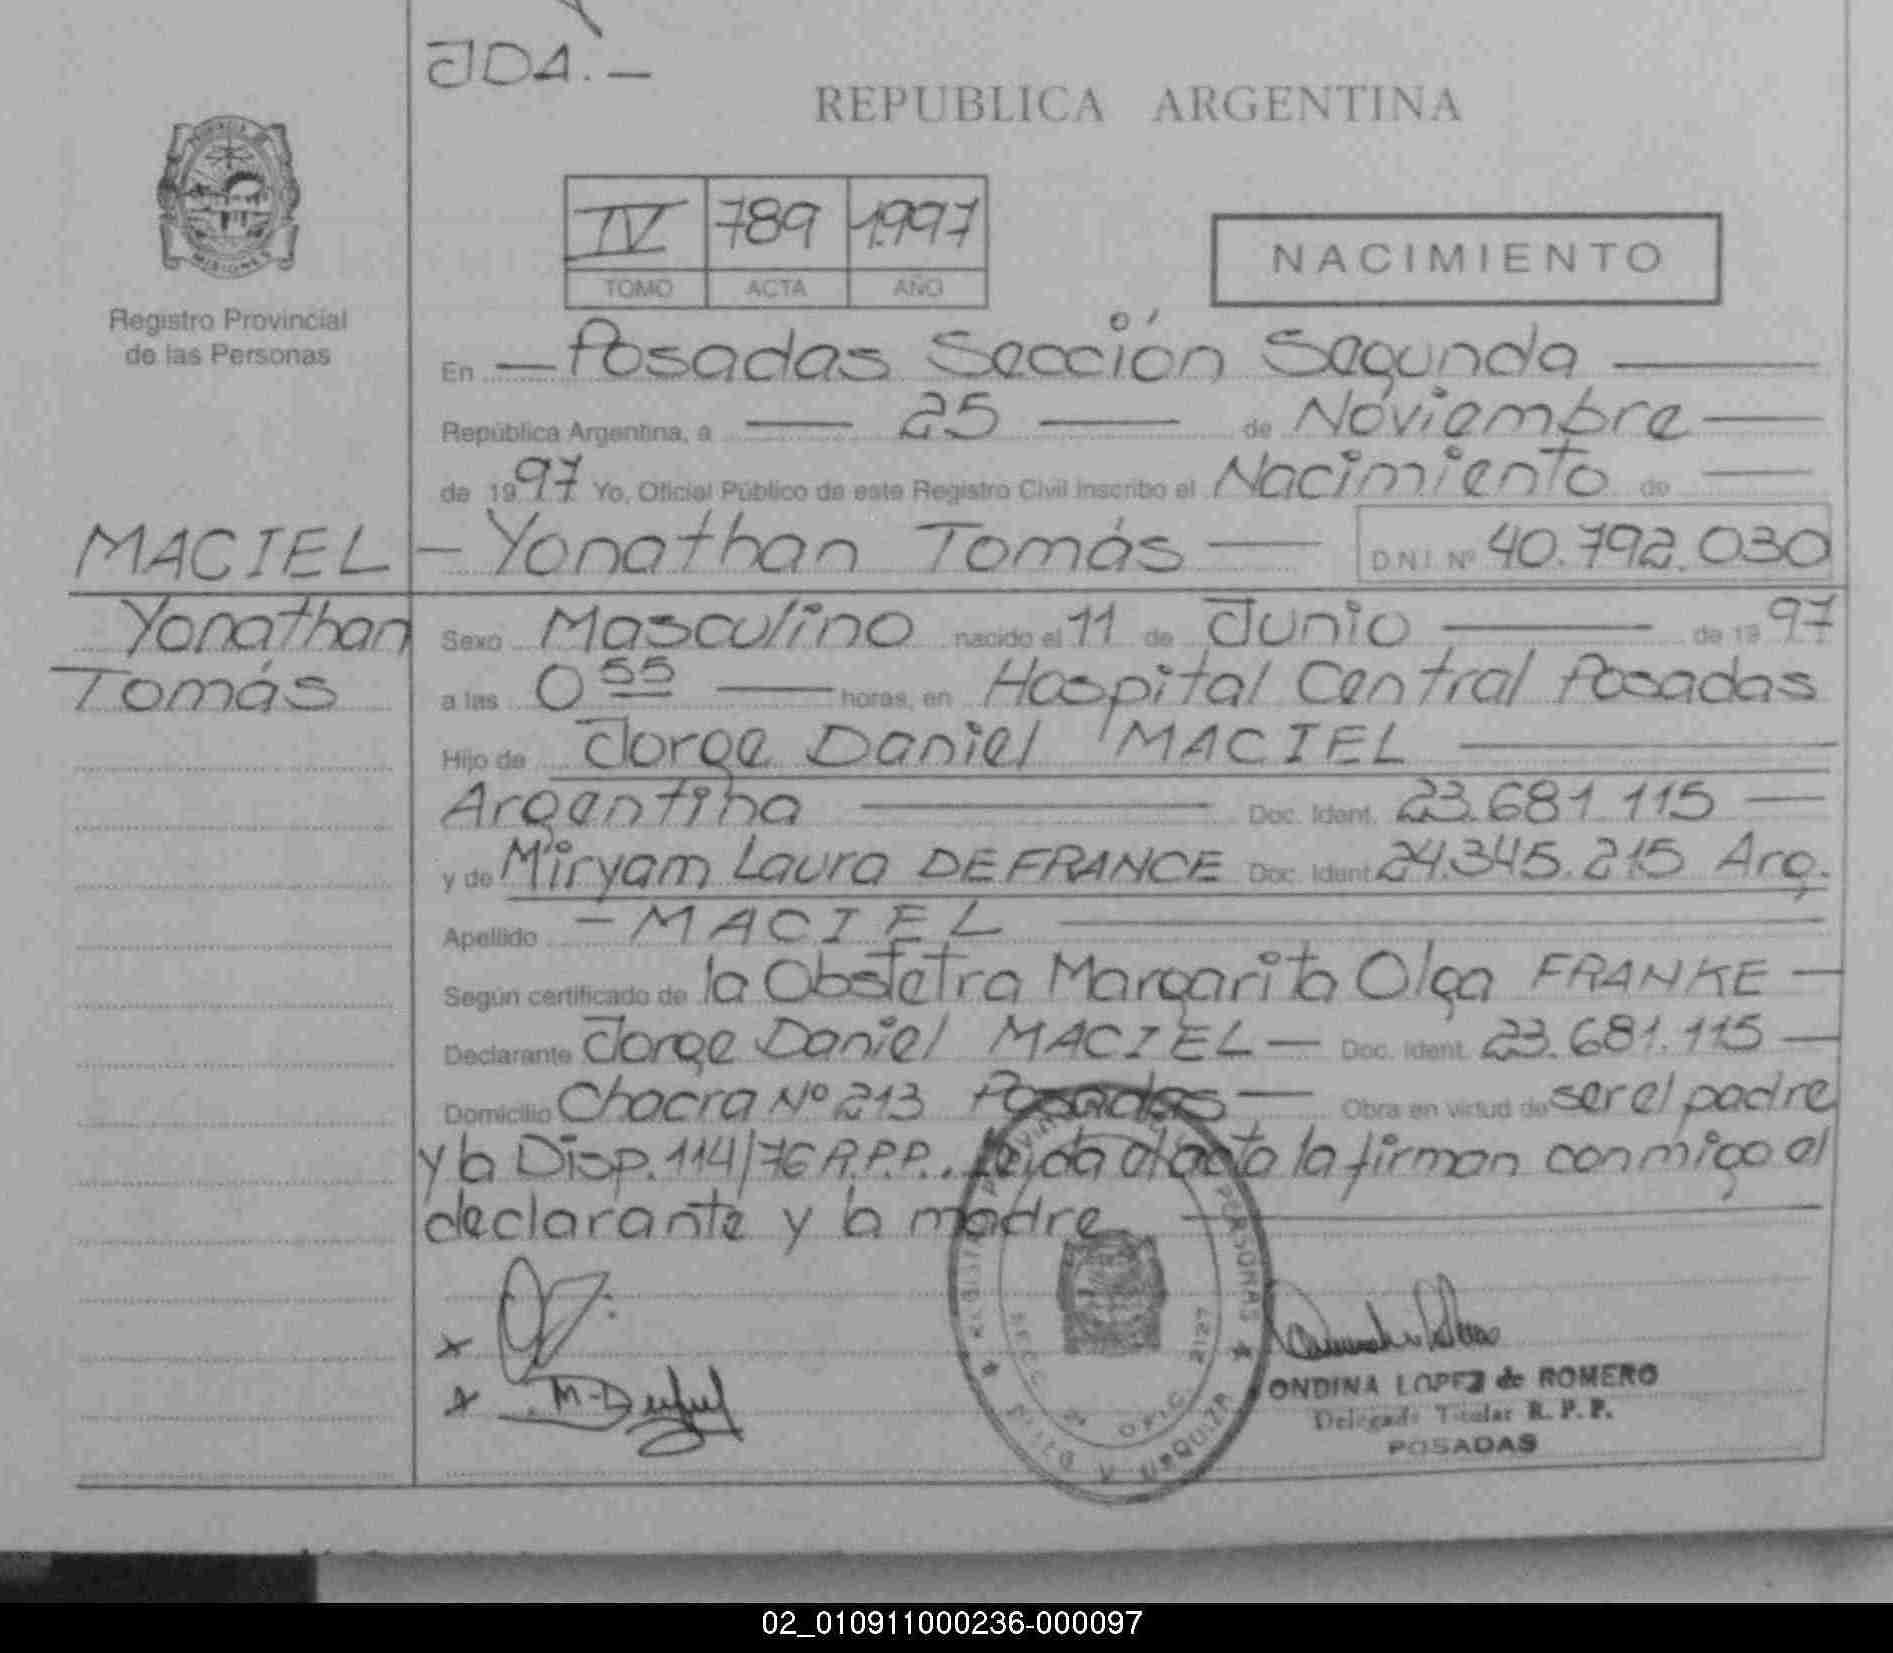 JDA.-
REPUBLICA ARGENTINA
MISIONES
Registro Provincial
de las Personas
IV 789 1.997
TOMO ACTA AÑO
NACIMIENTO
En — Posadas Sección Segunda —
República Argentina, a — 25 — de Noviembre —
de 1997 Yo, Oficial Público de este Registro Civil inscribo el Nacimiento de —
MACIEL - Yonathan Tomás — D.N.I. Nº 40.792.030
Yonathan
Tomás
Sexo Masculino nacido el 11 de Junio — de 1997
a las 0 55 — horas, en Hospital Central Posadas
Hijo de Jorge Daniel MACIEL —
Argentina — Doc. Ident. 23.681.115 —
y de Miryam Laura DEFRANCE Doc. Ident. 24.345.215 Arg.
Apellido - MACIEL —
Según certificado de la Obstetra Margarita Olga FRANKE —
Declarante Jorge Daniel MACIEL — Doc. Ident. 23.681.115 —
Domicilio Chacra Nº 213 Posadas — Obra en virtud de ser el padre
y la Disp. 114/76 R.P.P.. Leida el acta la firman conmigo el
declarante y la madre —
ONDINA LOPEZ de ROMERO
Delegada Titular R. P. P.
POSADAS
02_010911000236-000097